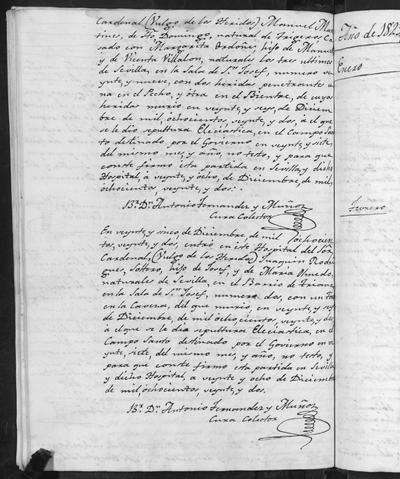 Cardenal (Vulgo de los Heridos) Manuel Mar-
tines, de Sto Domingo, natural de Trigeros, Ca
sado con Margarita Ordoñes, hijo de Manuel
y de Vicenta Villalon, naturales los tres ultimos
de Sevilla, en la Sala de Sn Josef, numero vey
nte, y nueve, con dos heridas penetrante u
na en el Pecho, y otra en el Bientre, de cuyas
heridas murio en veynte, y seys, de Diciem
bre de mil, ochocientos, veynte, y dos, à el que
se le dio sepultura Eleciastica, en el Campo San
to destinado por el Govierno en veynte, y siete,
del mismo mes, y año, no testo, y para que
conste firmo esta partida en Sevilla, y dicho
Hospital, à veynte, y ocho, de Diciembre, de mil,
ochocientos, veynte, y dos.
Br. Dn. Antonio Fernandez y Muñoz
Cura Colector
En veynte, y sinco de Diciembre, de mil Ochocien
tos, veynte, y dos, entró en este Hospital del Sor
Cardenal, (Vulgo de los Heridos) Juaquin Rodri
gues, Soltero, hijo de Josef, y de Maria Olmedo,
naturales de Sevilla, en el Barrio de Triana
en la Sala de Sn Josef, numero dos, con un
en la Cavesa, del que murio, en veynte, y seys
de Diciembre de mil ochocientos, veynte, y dos
à el que se le dio sepultura Eleciastica, en el
Campo Santo destinado por el Govierno en ve
ynte, siete, del mismo mes, y año, no testo, y
para que conste firmo esta partida en Sevilla
y dicho Hospital, a veynte y ocho de Diciembre
de mil, ochocientos, veynte, y dos.
Br. Dn. Antonio Fernandez y Muñoz
Cura Colector
Año de 182
Enero
Febrero